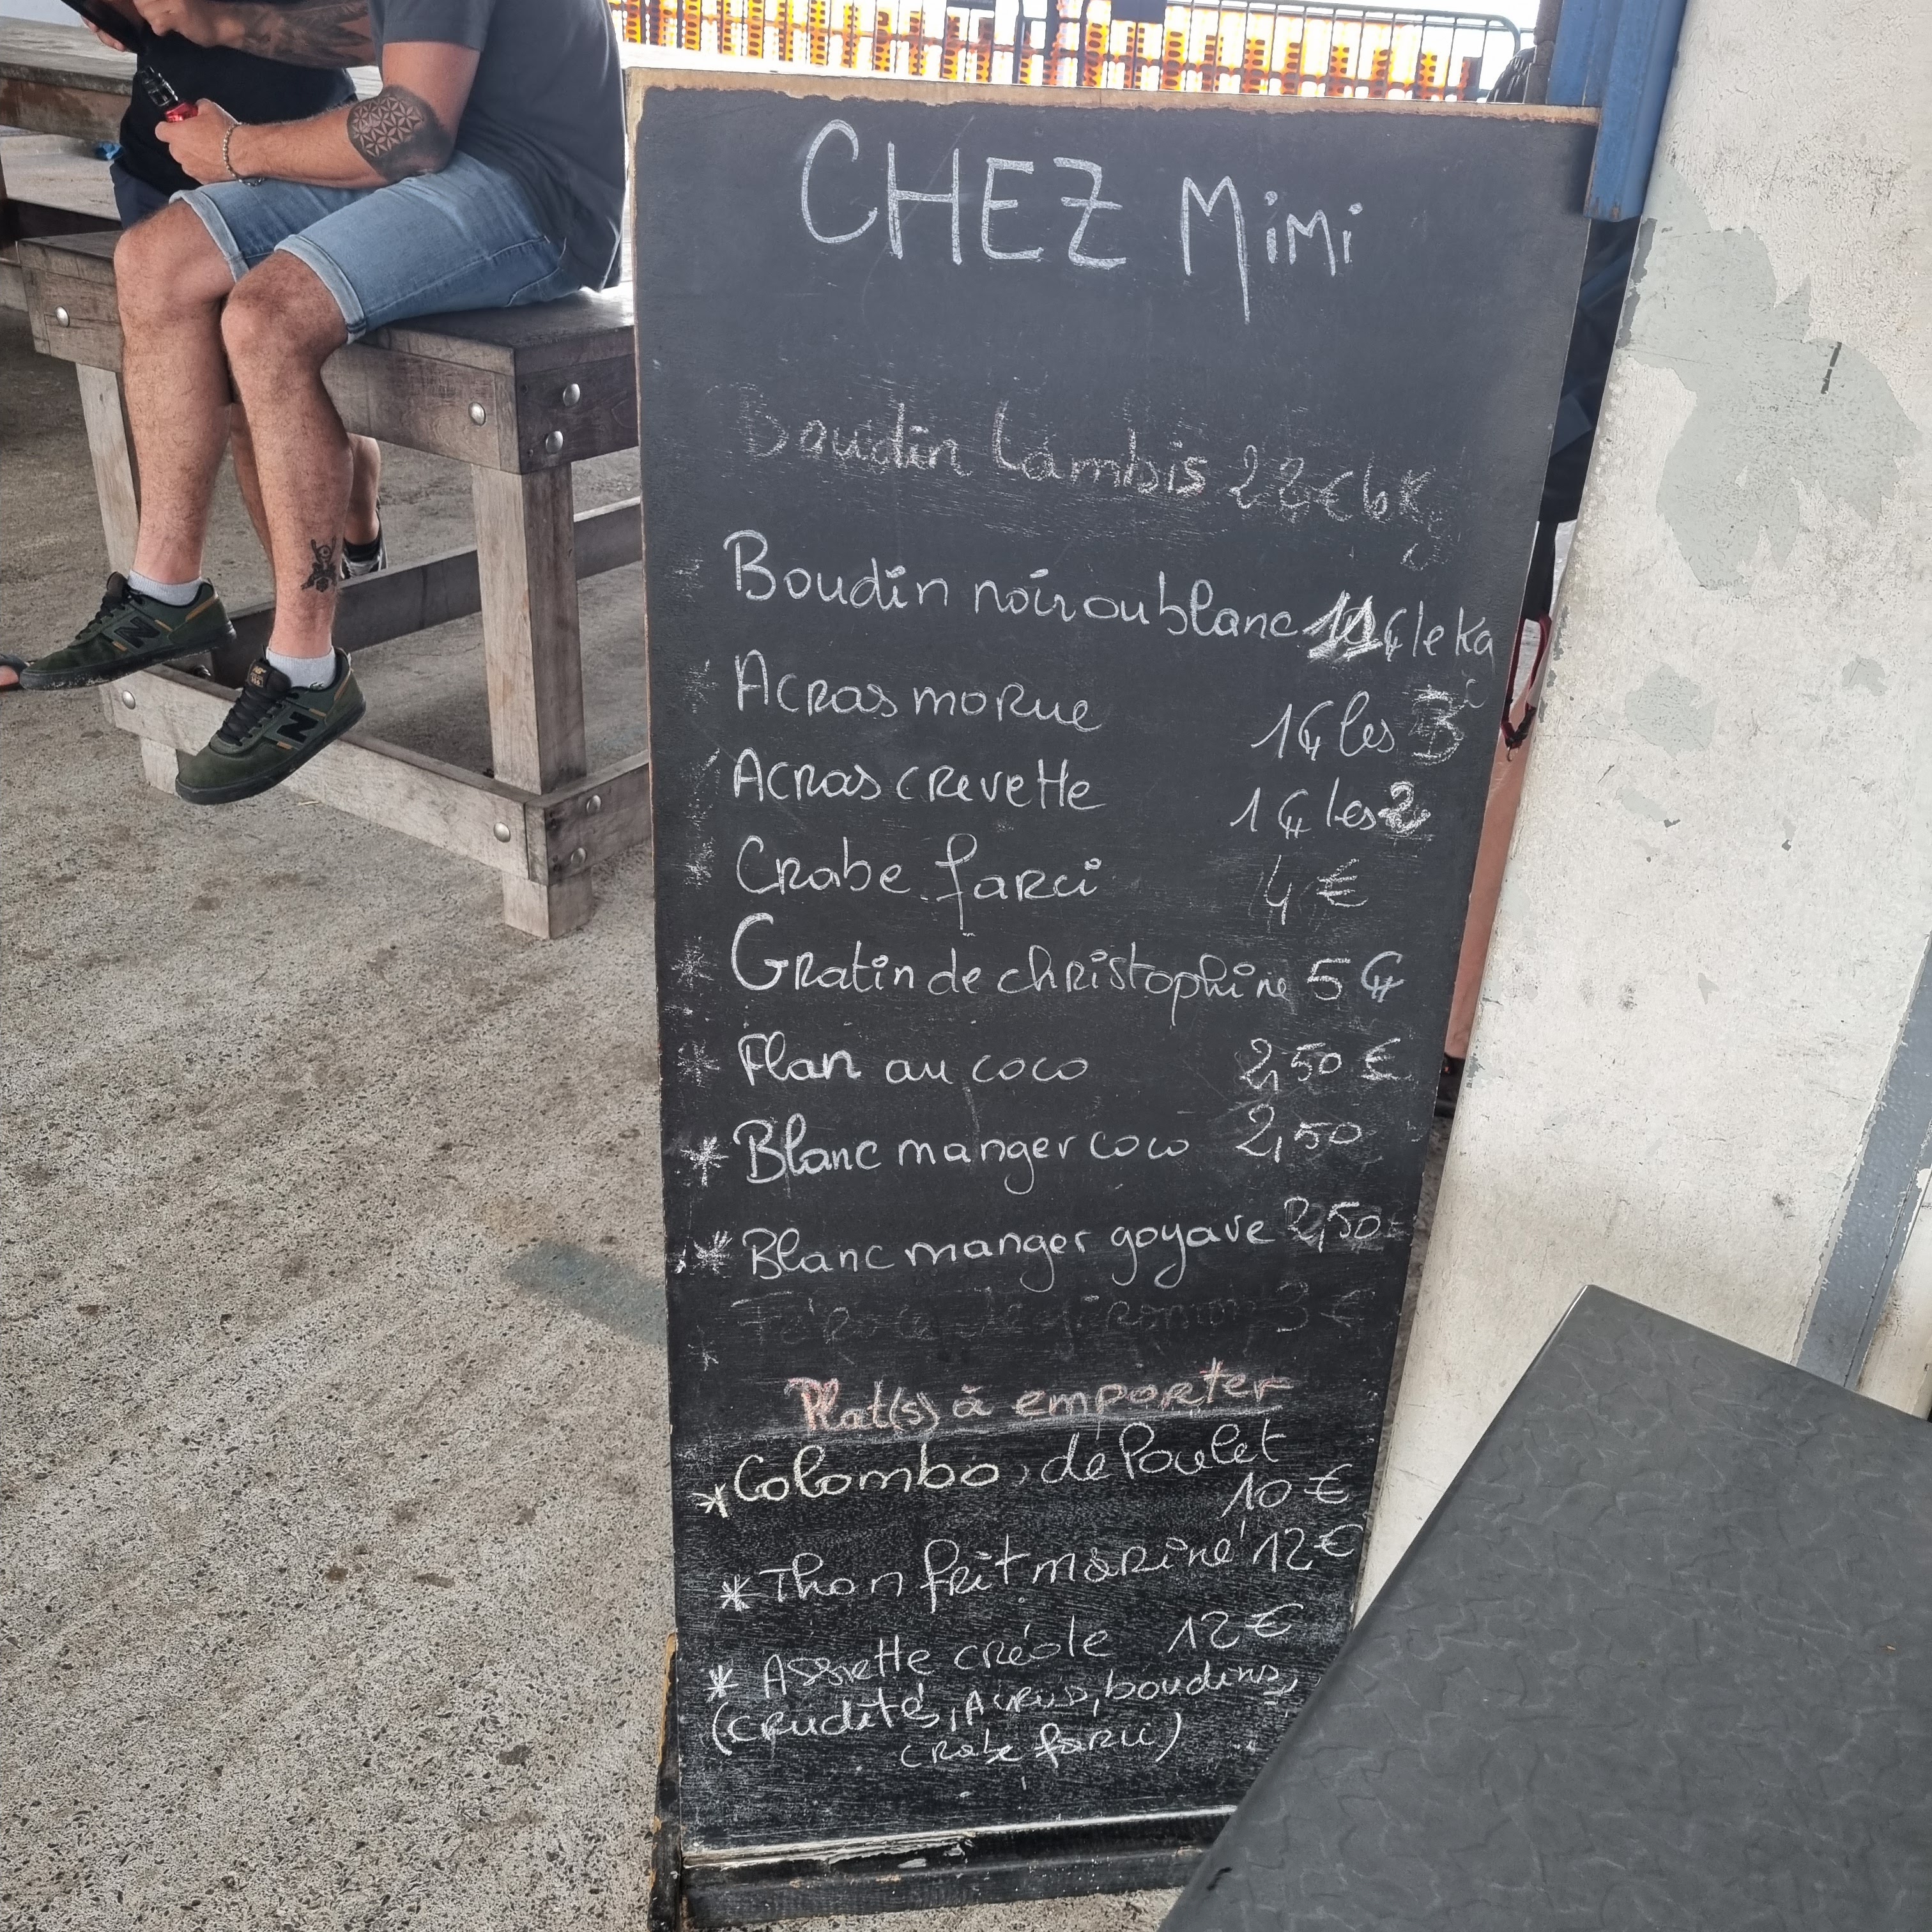 CHEZ MiMi
Boudin Lambis 22€ le Kg
Boudin noir ou blanc € le Kg
Acras morue 1€ les 3
Acras crevette 1€ les 2
Crabe farci 4 €
* Gratin de christophine 5 €
* Flan au coco 2,50 €
* Blanc manger coco 2,50
* Blanc manger goyave 2,50
3 €
Plat(s) à emporter
* Colombo, de Poulet
10 €
* Thon frit mariné 12€
* Assiette créole 12€
(crudités, Acras, boudins,
crabe farci)